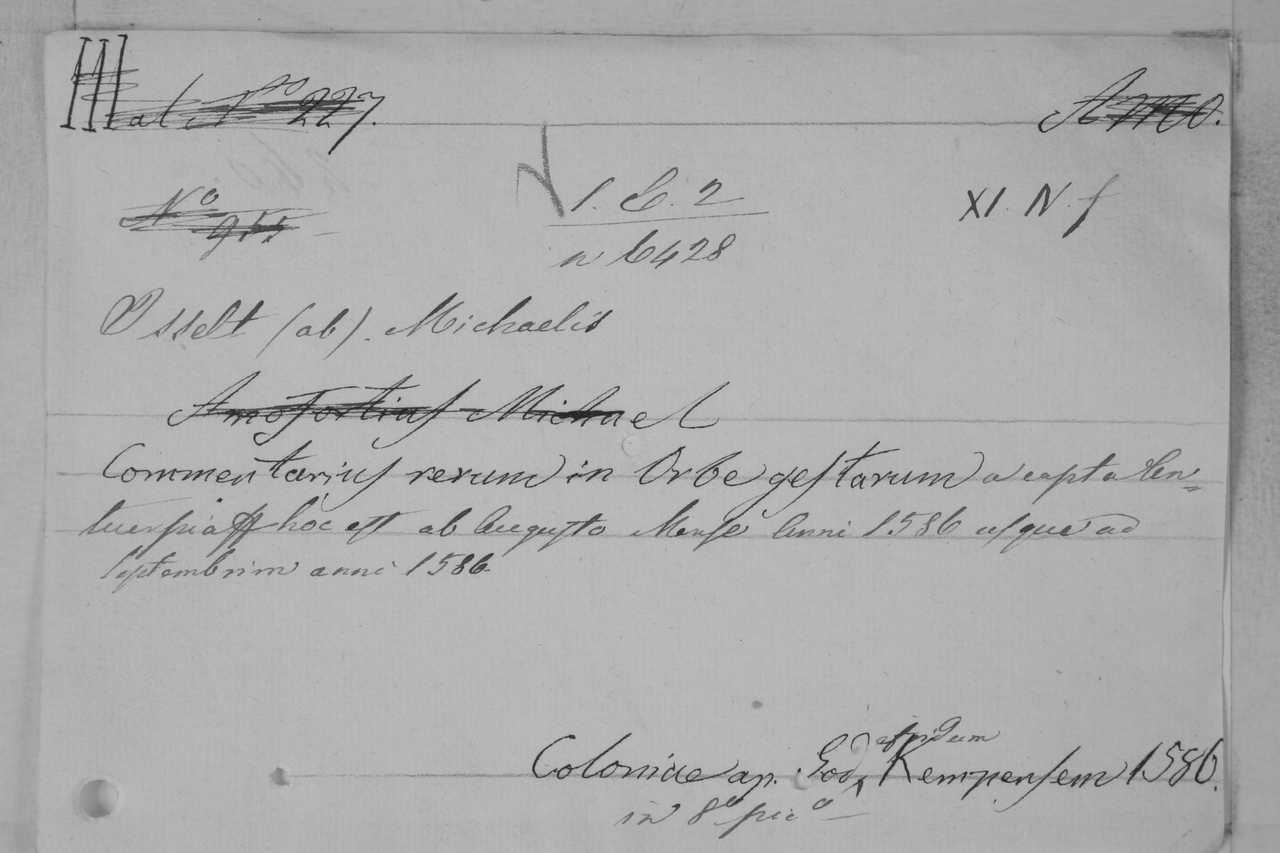 III
al. No 227.
No
1. C. 2
n 6428
XI. N. f
Isselt (ab). Michaelis
Amofortius Michael
Commentarius rerum in Orbe gestarum a capta An=
tuerpia hoc est ab Augusto Mense Anni 1586 usque ad
septembrim anni 1586
Coloniae ap. God Kempensem 1586.
in 8o pico